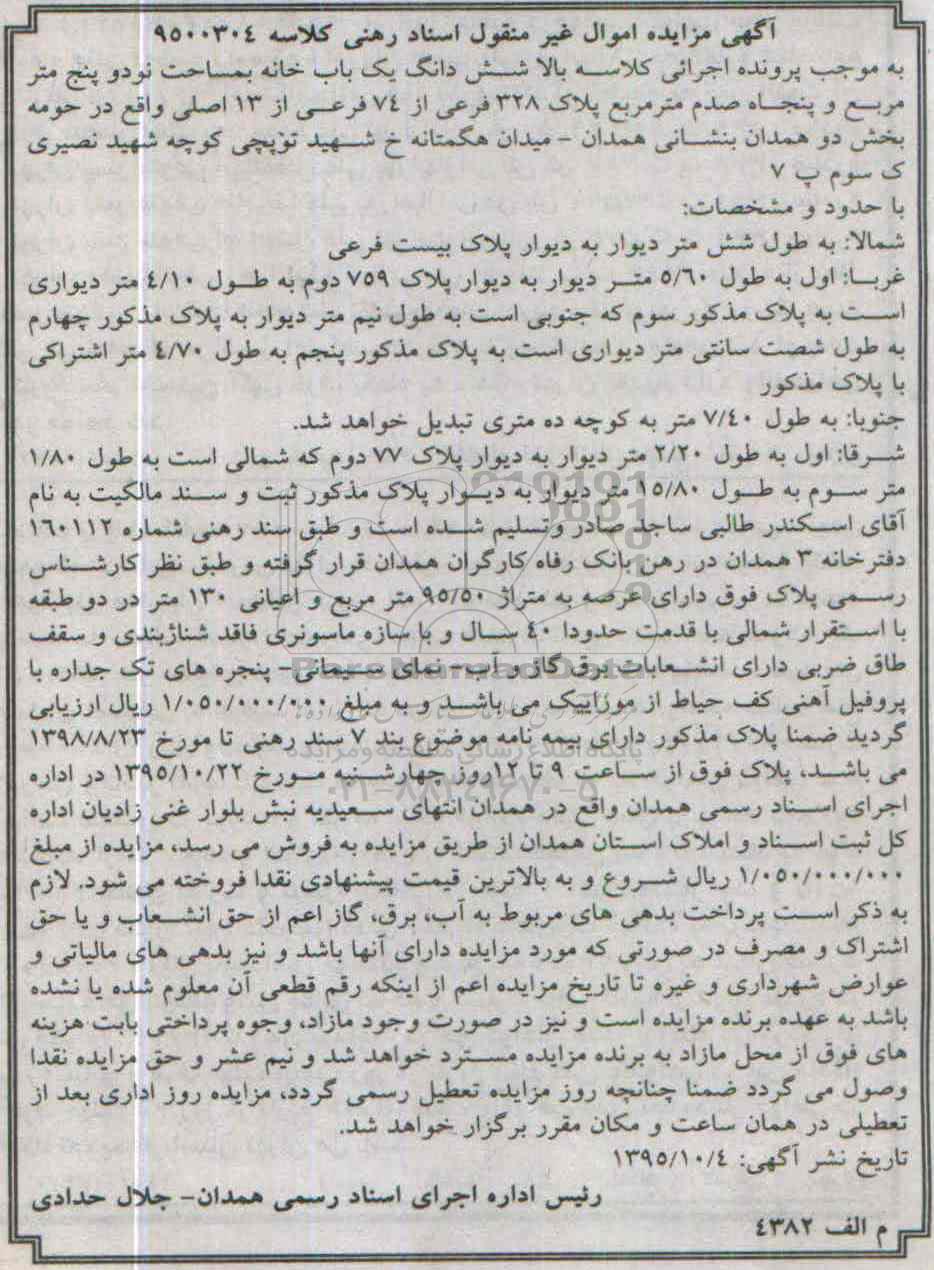 آگهی مزایده اموال غیر منقول اسناد رهنی کلاسه ۹۵۰۰۳۰۴
به موجب پرونده اجرائی کلاسه بالا شش دانگ یک باب خانه بمساحت نودو پنج متر
مربع و پنجاه صدم مترمربع پلاک ۳۲۸ فرعی از ۷٤ فرعی از ۱۳ اصلی واقع در حومه
بخش دو همدان بنشانی همدان - میدان هگمتانه خ شهید توپچی کوچه شهید نصیری
ک سوم پ ۷
با حدود و مشخصات:
شمالا: به طول شش متر دیوار به دیوار پلاک بیست فرعی
غربا: اول به طول ۵/٦۰ متر دیوار به دیوار پلاک ۷۵۹ دوم به طول ٤/۱۰ متر دیواری
است به پلاک مذکور سوم که جنوبی است به طول نیم متر دیوار به پلاک مذکور چهارم
به طول شصت سانتی متر دیواری است به پلاک مذکور پنجم به طول ٤/۷۰ متر اشتراکی
با پلاک مذکور
جنوبا: به طول ۷/٤۰ متر به کوچه ده متری تبدیل خواهد شد.
شرقا: اول به طول ۲/۲۰ متر دیوار به دیوار پلاک ۷۷ دوم که شمالی است به طول ۱/۸۰
متر سوم به طول ۱۵/۸۰ متر دیوار به دیوار پلاک مذکور ثبت و سند مالکیت به نام
آقای اسکندر طالبی ساجد صادر وتسلیم شده است و طبق سند رهنی شماره ۱٦۰۱۱۲
دفترخانه ۳ همدان در رهن بانک رفاه کارگران همدان قرار گرفته و طبق نظر کارشناس
رسمی پلاک فوق دارای عرصه به متراژ ۹۵/۵۰ متر مربع و اعیانی ۱۳۰ متر در دو طبقه
با استقرار شمالی با قدمت حدودا ٤۰ سال و با سازه ماسونری فاقد شناژبندی و سقف
طاق ضربی دارای انشعابات برق گاز و آب- نمای سیمانی- پنجره های تک جداره با
پروفیل آهنی کف حیاط از موزاییک می باشد و به مبلغ ۱/۰۵۰/۰۰۰/۰۰۰ ریال ارزیابی
گردید ضمنا پلاک مذکور دارای بیمه نامه موضوع بند ۷ سند رهنی تا مورخ ۱۳۹۸/۸/۲۳
می باشد، پلاک فوق از ساعت ۹ تا ۱۲روز چهارشنبه مورخ ۱۳۹۵/۱۰/۲۲ در اداره
اجرای اسناد رسمی همدان واقع در همدان انتهای سعیدیه نبش بلوار غنی زادیان اداره
کل ثبت اسناد و املاک استان همدان از طریق مزایده به فروش می رسد، مزایده از مبلغ
۱/۰۵۰/۰۰۰/۰۰۰ ریال شروع و به بالاترین قیمت پیشنهادی نقدا فروخته می شود. لازم
به ذکر است پرداخت بدهی های مربوط به آب، برق، گاز اعم از حق انشعاب و یا حق
اشتراک و مصرف در صورتی که مورد مزایده دارای آنها باشد و نیز بدهی های مالیاتی و
عوارض شهرداری و غیره تا تاریخ مزایده اعم از اینکه رقم قطعی آن معلوم شده یا نشده
باشد به عهده برنده مزایده است و نیز در صورت وجود مازاد، وجوه پرداختی بابت هزینه
های فوق از محل مازاد به برنده مزایده مسترد خواهد شد و نیم عشر و حق مزایده نقدا
وصول می گردد ضمنا چنانچه روز مزایده تعطیل رسمی گردد، مزایده روز اداری بعد از
تعطیلی در همان ساعت و مکان مقرر برگزار خواهد شد.
تاریخ نشر آگهی: ۱۳۹۵/۱۰/٤
رئیس اداره اجرای اسناد رسمی همدان- جلال حدادی
م الف ٤۳۸۲
ParsNamadData
پایگاه اطلاع رسانی مناقصه و مزایده
۰۲۱-۸۸۳٤۹٦۷۰-۵